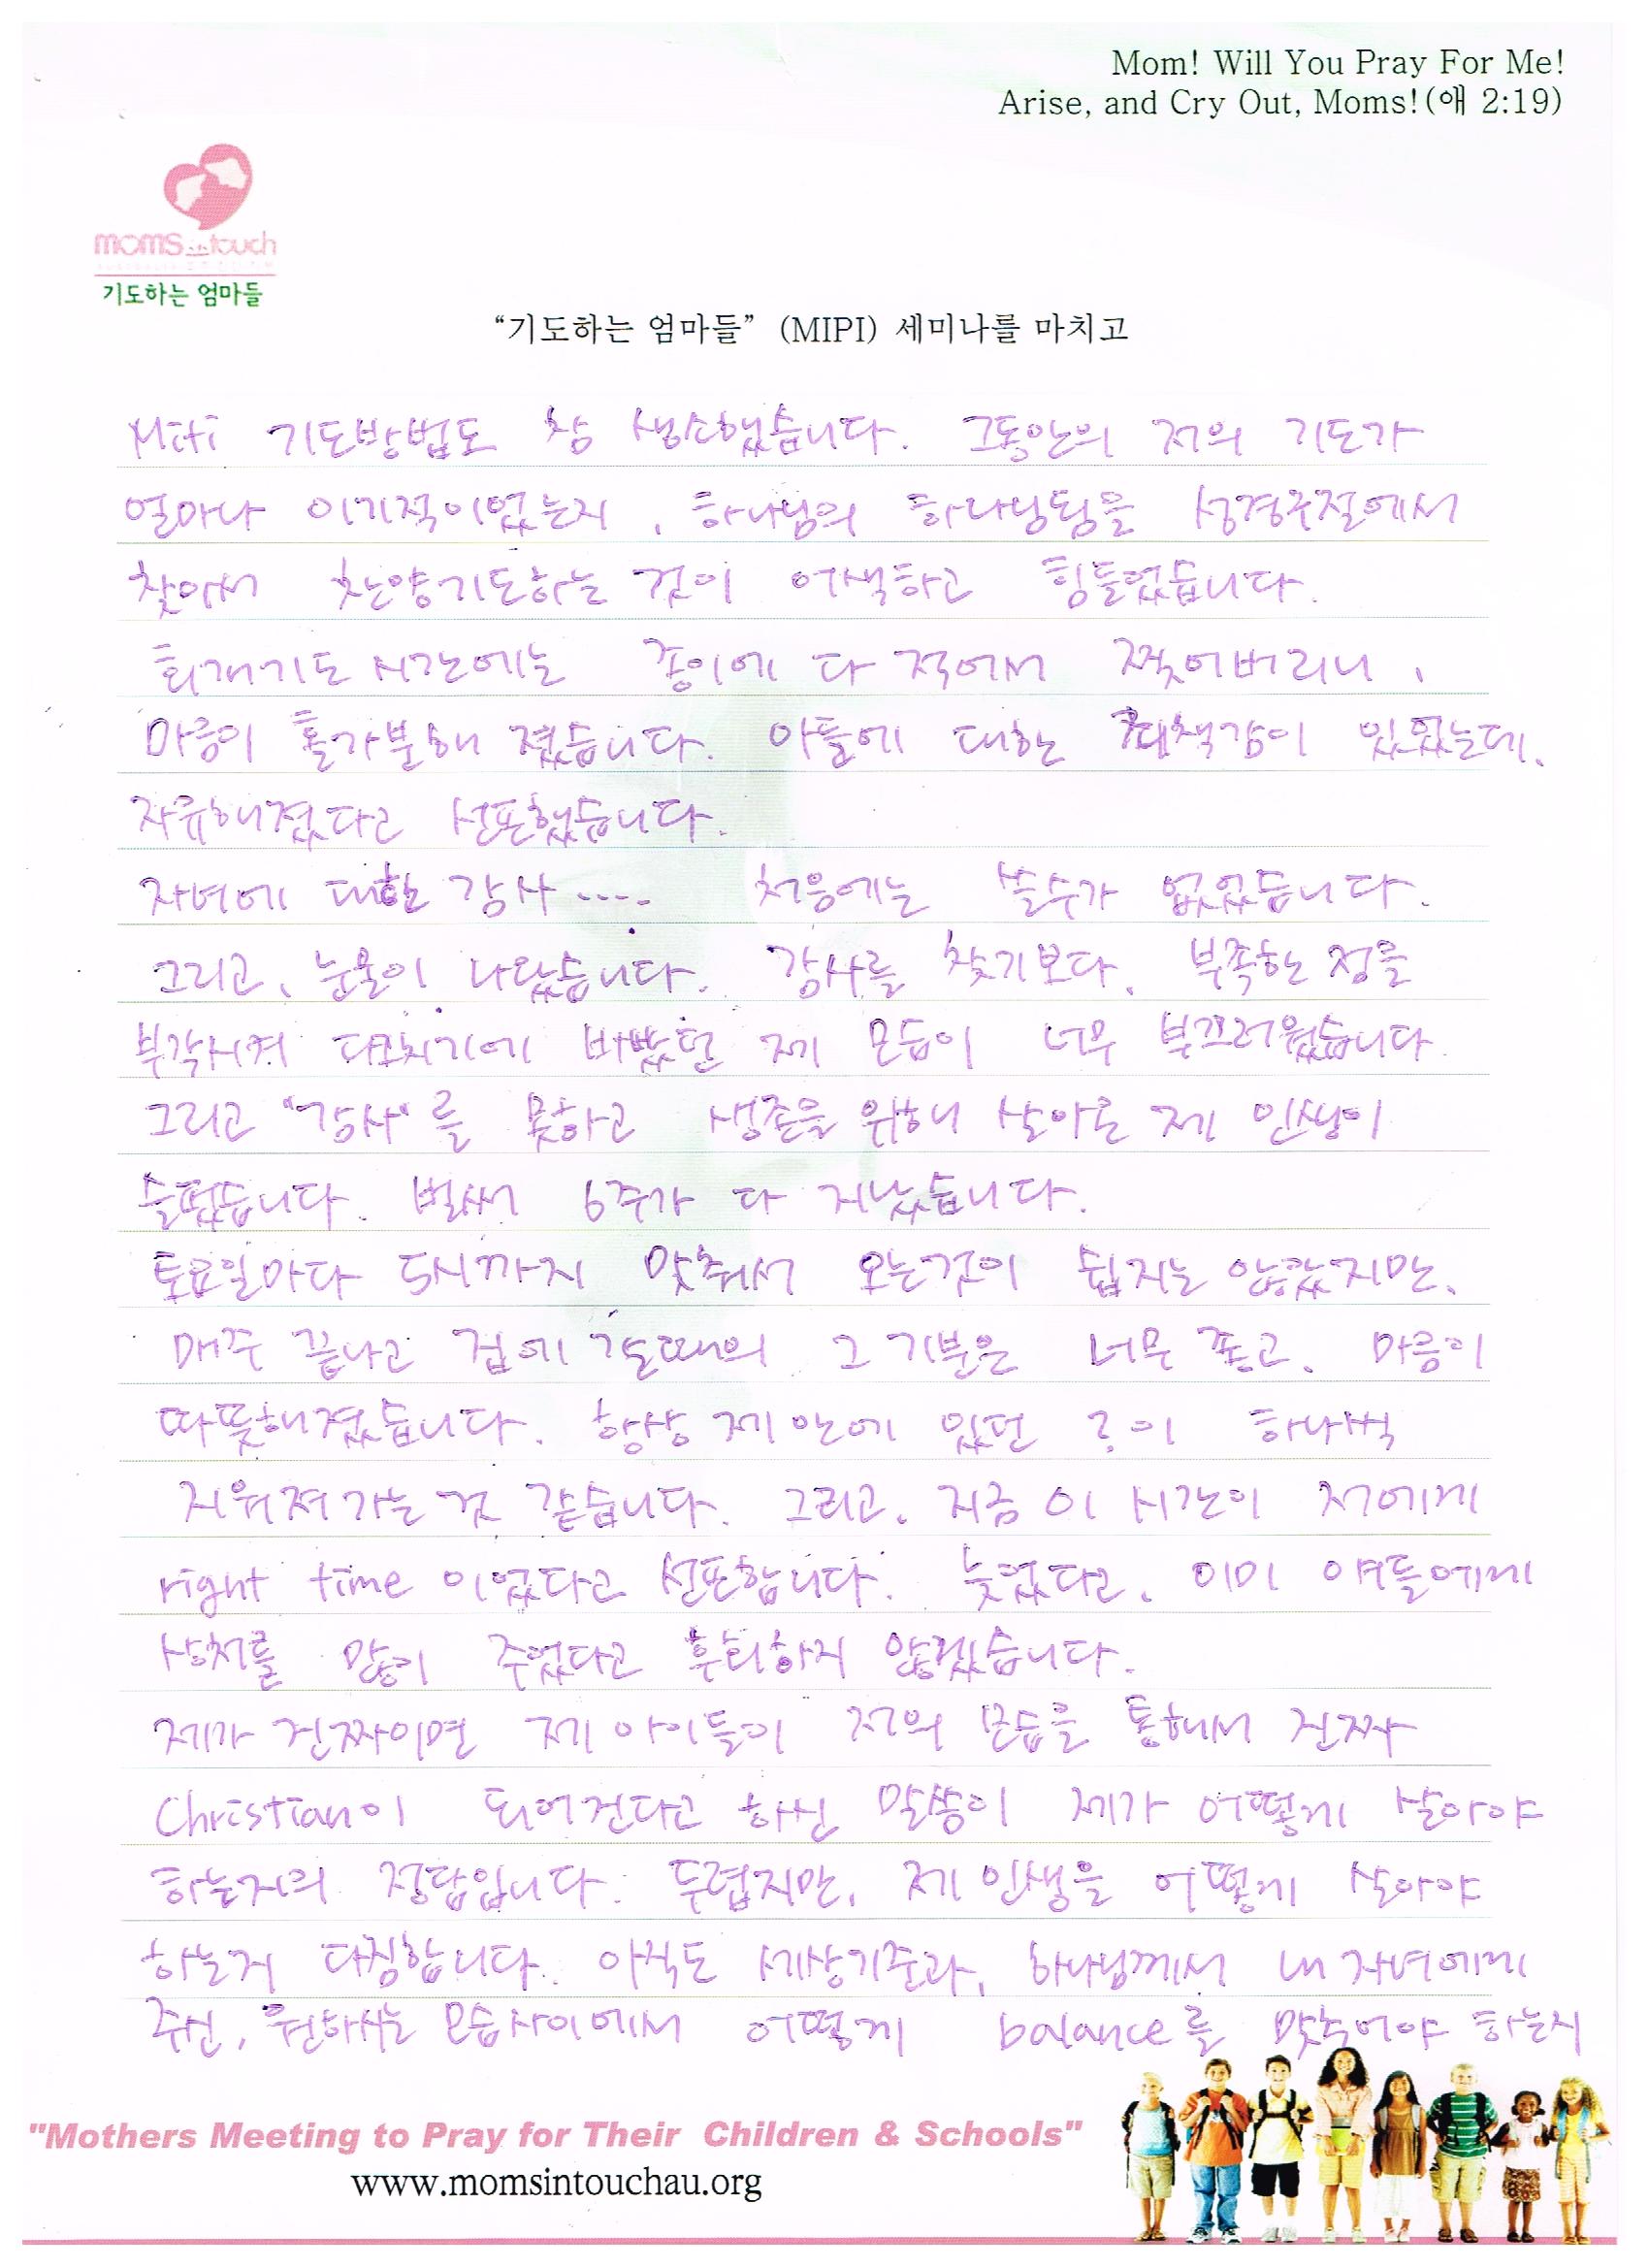 Mom! Will You Pray For Me!
Arise, and Cry Out, Moms!(애 2:19)
moms in touch
기도하는 엄마들
“기도하는 엄마들” (MIPI) 세미나를 마치고
기도방법도 참 생소했습니다. 그동안의 저의 기도가
얼마나 이기적이었는지, 하나님의 하나님됨을 성경구절에서
찾아서 찬양기도하는 것이 어색하고 힘들었습니다.
회개기도 시간에는 종이에 다 적어서 찢어버리니,
마음이 홀가분해 졌습니다. 아들에 대한 죄책감이 있었는데,
자유해졌다고 선포했습니다.
자녀에 대한 감사---- 처음에는 쓸수가 없었습니다.
그리고, 눈물이 나왔습니다. 감사를 찾기보다, 부족한 점을
부각시켜 다그치기에 바빴던 제 모습이 너무 부끄러웠습니다.
그리고 "감사"를 못하고 생존을 위해 살아온 제 인생이
슬펐습니다. 벌써 6주가 다 지났습니다.
토요일마다 5시까지 맞춰서 오는것이 쉽지는 않았지만,
매주 끝나고 집에 갈때의 그 기분은 너무 좋고, 마음이
따뜻해졌습니다. 항상 제 안에 있던 ?이 하나씩
지워져가는 것 같습니다. 그리고, 지금 이 시간이 저에게
right time 이었다고 선포합니다. 늦었다고, 이미 애들에게
상처를 많이 주었다고 후회하지 않겠습니다.
제가 진짜이면 제 아이들이 저의 모습을 통해서 진짜
Christian이 되어진다고 하신 말씀이 제가 어떻게 살아야
하는지의 정답입니다. 두렵지만, 제 인생을 어떻게 살아야
하는지 다짐합니다. 아직도 세상기준과, 하나님께서 내 자녀에게
주신, 원하시는 모습사이에서 어떻게 balance를 맞추어야 하는지
"Mothers Meeting to Pray for Their Children & Schools"
www.momsintouchau.org